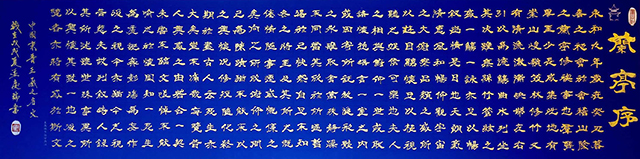 蘭亭序
永和九年歲在癸丑暮
春之初會于會稽山陰
之蘭亭脩禊事也群賢
畢至少長咸集此地有
崇山峻領茂林脩竹又
有清流激湍映帶左右
引以為流觴曲水列坐
其次雖無絲竹管弦之
盛一觴一詠亦足以暢
敘幽情是日也天朗氣
清惠風和暢仰觀宇宙
之大俯察品類之盛所
以遊目騁懷足以極視
聽之娛信可樂也夫人
之相與俯仰一世或取
諸懷抱悟言一室之內
或因寄所託放浪形骸
之外雖趣舍萬殊靜躁
不同當其欣於所遇暫
得於己快然自足不知
老之將至及其所之既
惓情隨事遷感慨係之
矣向之所欣俛仰之間
已為陳跡猶不能不以
之興懷況脩短隨化終
期於盡古人云死生亦
大矣豈不痛哉每覽昔
人興感之由若合一契
未嘗不臨文嗟悼不能
喻之於懷固知一死生
為虛誕齊彭殤為妄作
後之視今亦猶今之視
昔悲夫故列敘時人錄
其所述雖世殊事異所
以興懷其致一也後之
覽者亦將有感於斯文
中國東晉王羲之原文